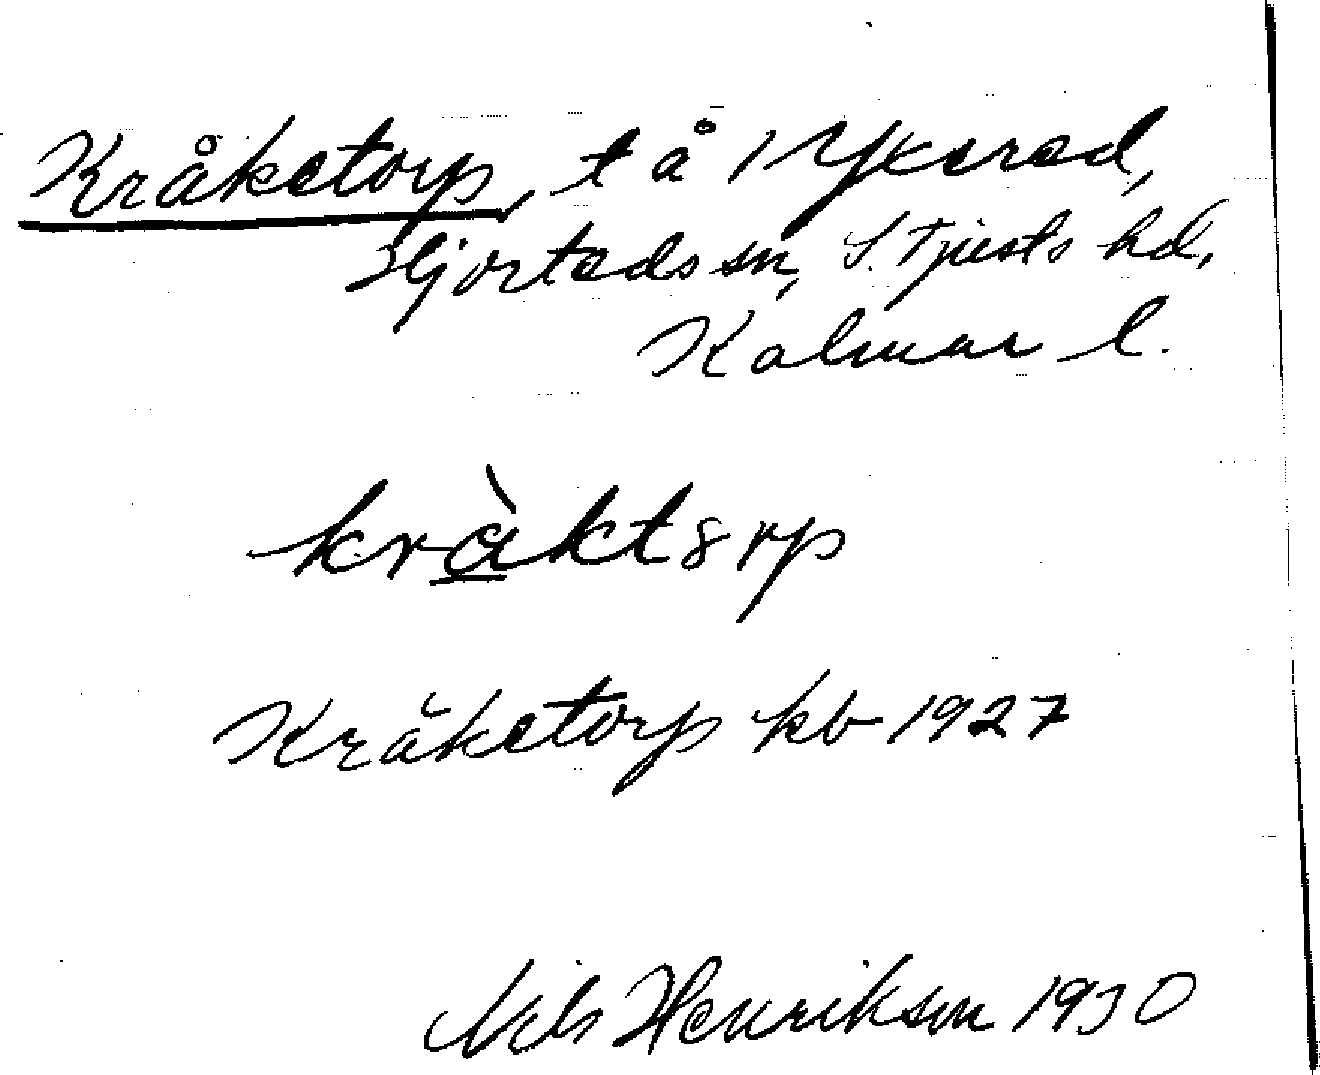 Kråketorp, t å 1 Ykerad,
Hjorteds sn, S. Tjusts hd,
Kalmar l.
kràktɔrp
Kråketorp kb 1927
Nils Henrikson 1930